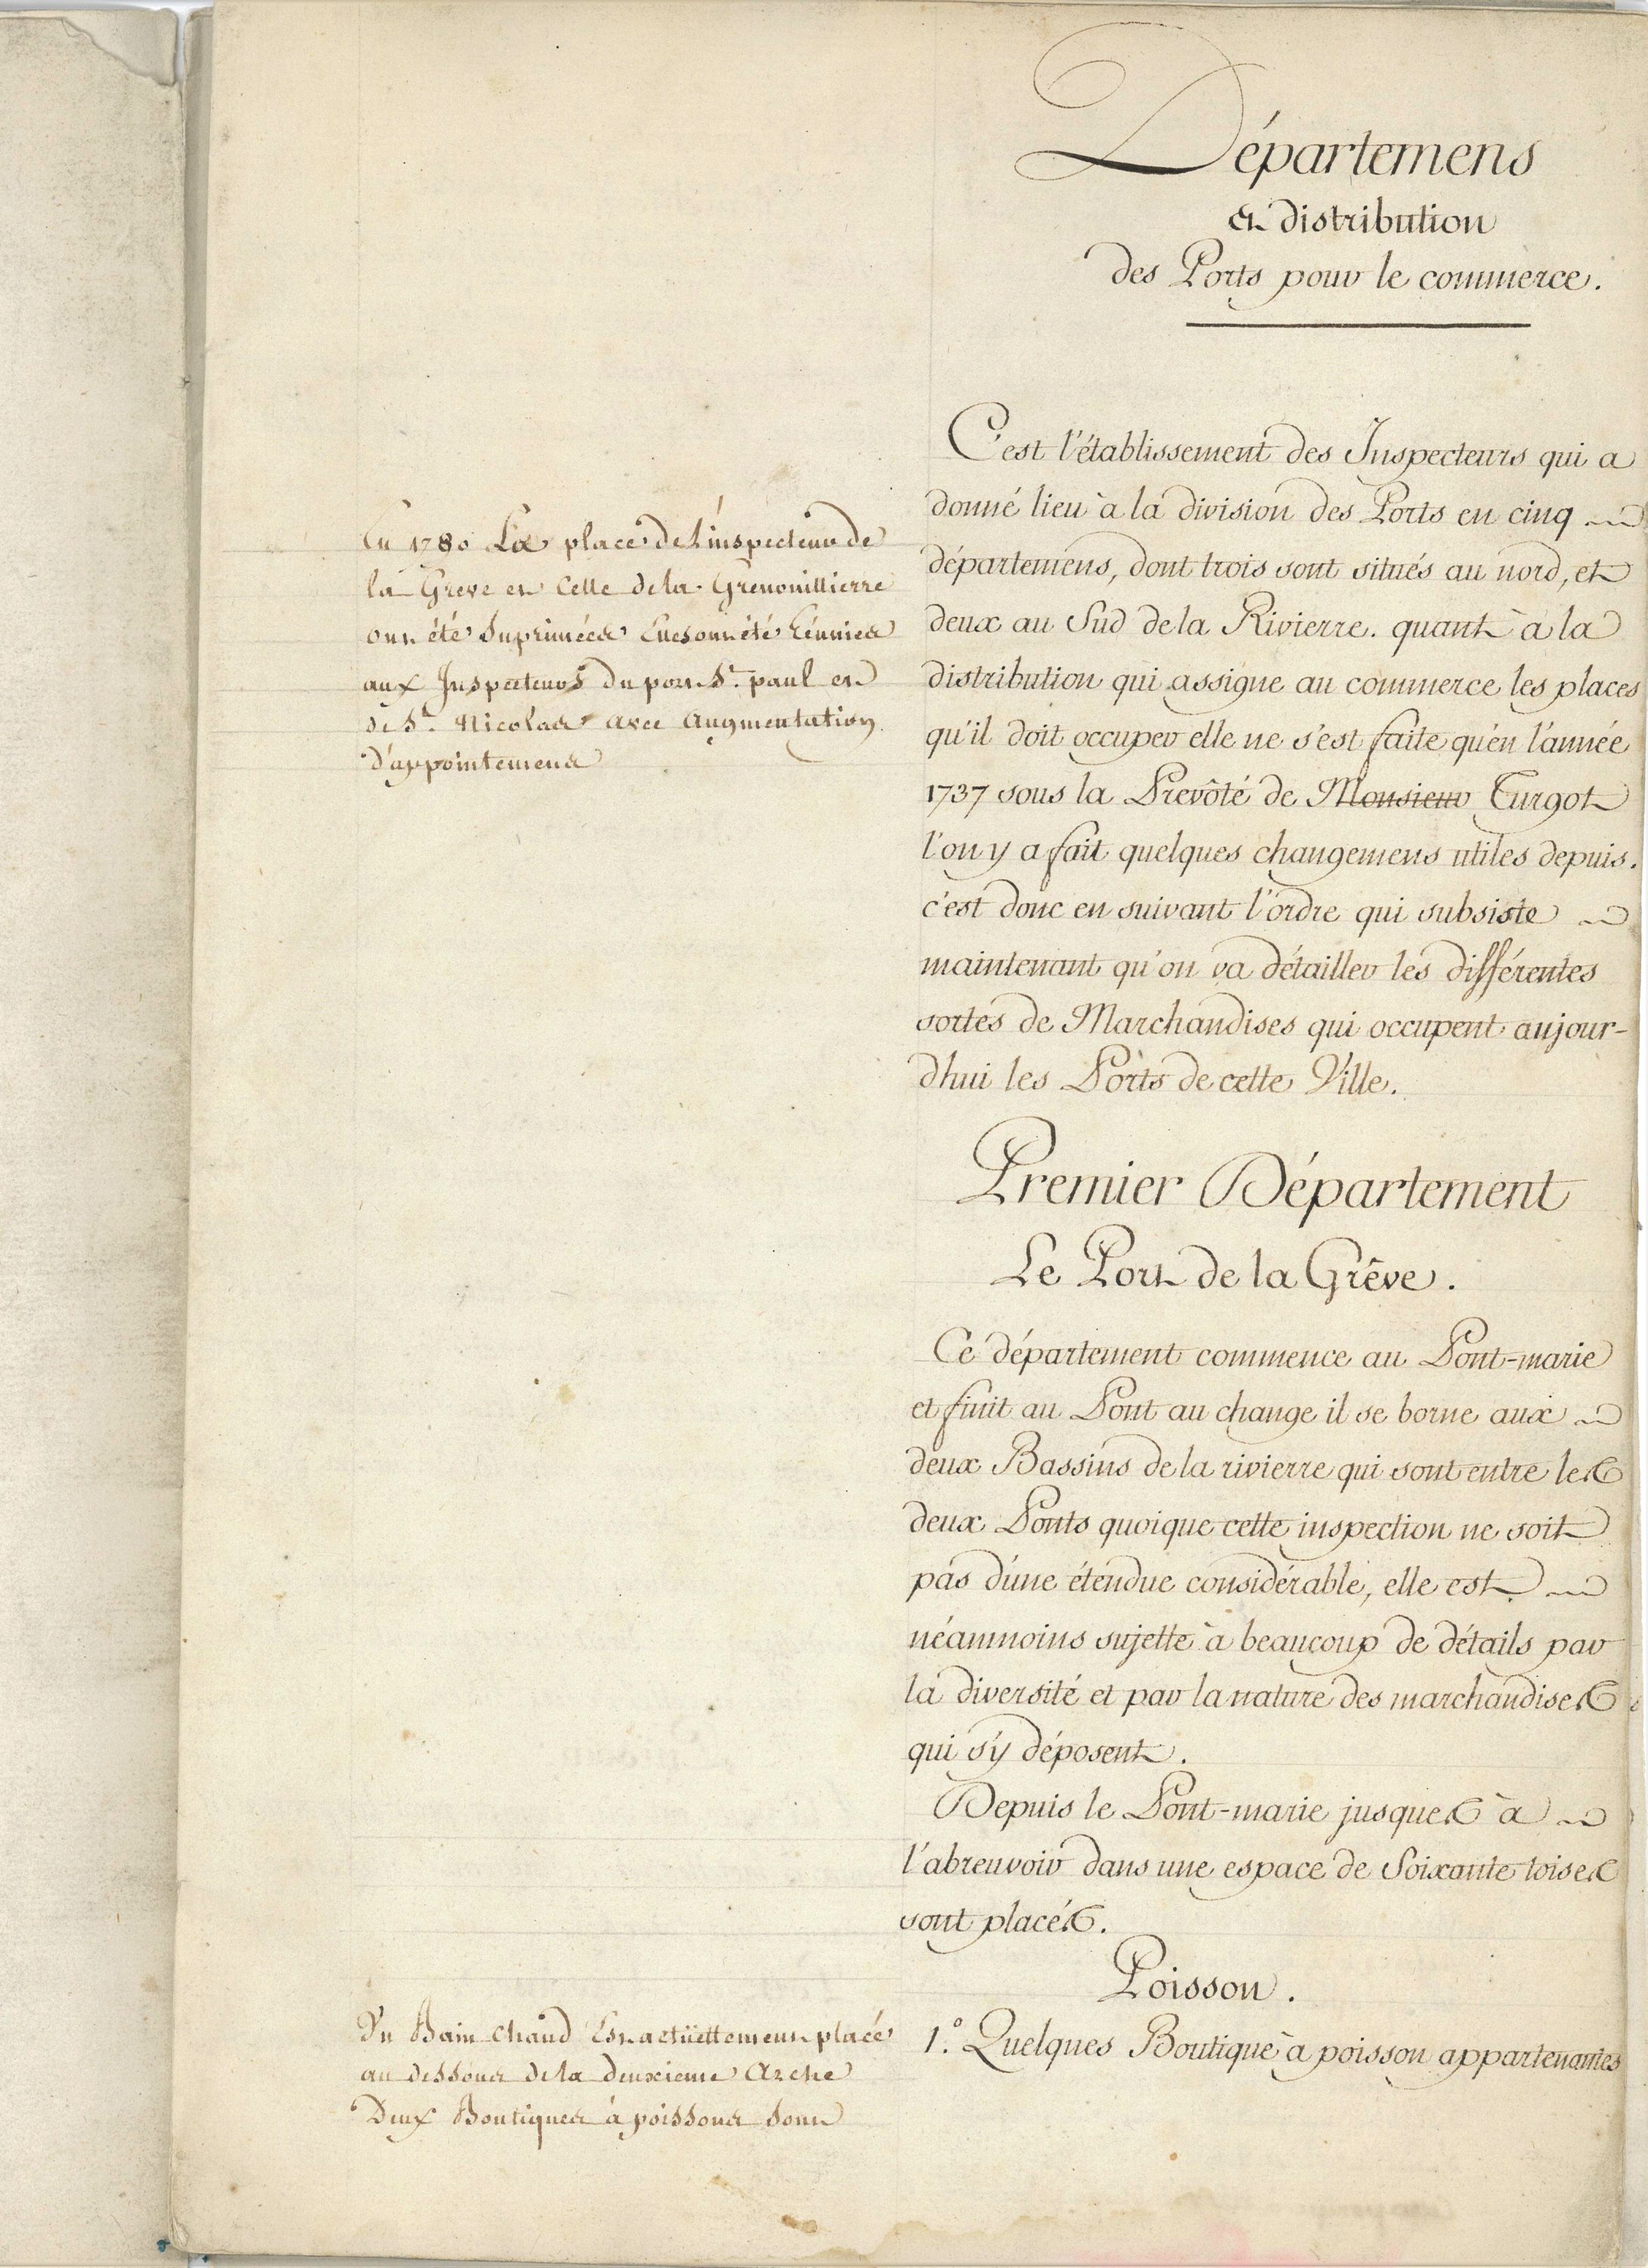 Départemens
et distribution
des Ports pour le commerce.
C'est l'établissement des Inspecteurs qui a
donné lieu à la division des Ports en cinq
départemens, dont trois sont situés au nord, et
deux au Sud de la Rivierre. quant à la
distribution qui assigne au commerce les places
qu'il doit occuper elle ne s'est faite qu'en l'année
1737 sous la Prevôté de Monsieur Turgot
l'on y a fait quelques changemens utiles depuis.
c'est donc en suivant l'ordre qui subsiste
maintenant qu'on va détailler les différentes
sortes de Marchandises qui occupent aujour-
d'hui les Ports de cette Ville.
En 1780 La place de l'inspecteur de
la Greve et Celle de la Grenouillierre
ont été Suprimées Elles ont été Réunies
aux Inspecteurs du port St. paul et
de St. Nicolas avec augmentation
d'appointemens
Premier Département
Le Port de la Grêve.
Ce département commence au Pont-marie
et finit au Pont au change il se borne aux
deux Bassins de la rivierre qui sont entre les
deux Ponts quoique cette inspection ne soit
pas d'une étendue considérable, elle est
néanmoins sujette à beaucoup de détails par
la diversité et par la nature des marchandises
qui s'y déposent.
Depuis le Pont-marie jusques à
l'abreuvoir dans une espace de Soixante toises
sont placés.
Poisson.
1.° Quelques Boutique à poisson appartenantes
Un Bain chaud Est actüellement placé
au dessous de la deuxieme Arche
Deux Boutiques à poissons sont